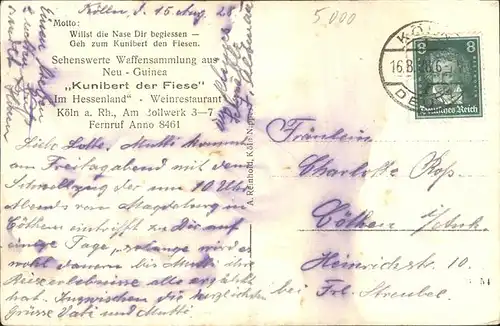 Köln, d. 15 Aug. 28
5,000
Motto:
Willst die Nase Dir begiessen —
Geh zum Kunibert den Fiesen.
Sehenswerte Waffensammlung aus
Neu - Guinea
„Kunibert der Fiese"
"Im Hessenland" - Weinrestaurant
Köln a. Rh., Am Bollwerk 3—7
Fernruf Anno 8461
Liebe Lotte, Mutti kommt
am Freitagabend mit dem
Schnellzug der um 10 Uhr
abends von Magdeburg in
Cöthen eintrifft zu Dir auf
einige Tage, solange wird es
wohl dauern bis Mutti ihre
Reiseerlebnisse alle erzählt
hat. Inzwischen die herzlichsten
Grüsse Vati und Mutti.
A. Reinhold, Köln-Nippes
KÖLN
16.8.28.6
8 8
Deutsches Reich
Fräulein
Charlotte
Cöthen i/Anh.
Heinrichstr. 10.
bei Frl. Strubel.